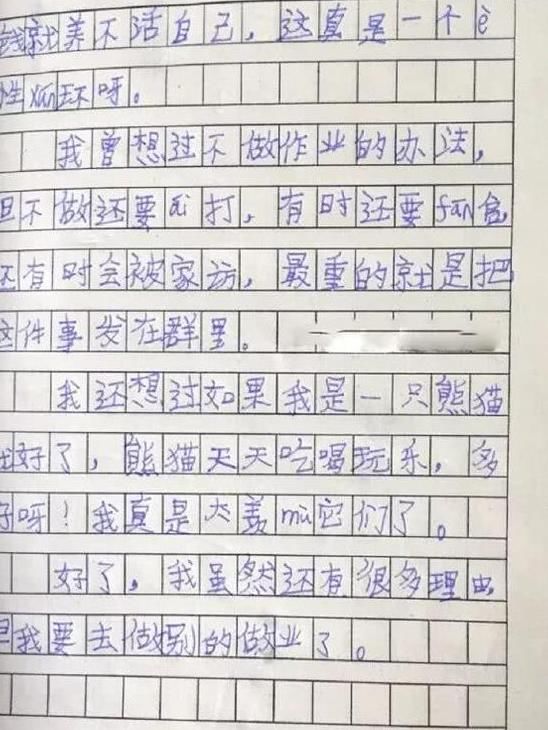 钱就养不活自己，这真是一个è
性xún环呀。
我曾想过不做作业的办法，
但不做还要ái打，有时还要fán食，
还有时会被家访，最重的就是把
这件事发在群里。
我还想过如果我是一只熊猫
就好了，熊猫天天吃喝玩乐，多
好呀！我真是太羡mù它们了。
好了，我虽然还有很多理由
但我要去做别的做业了。